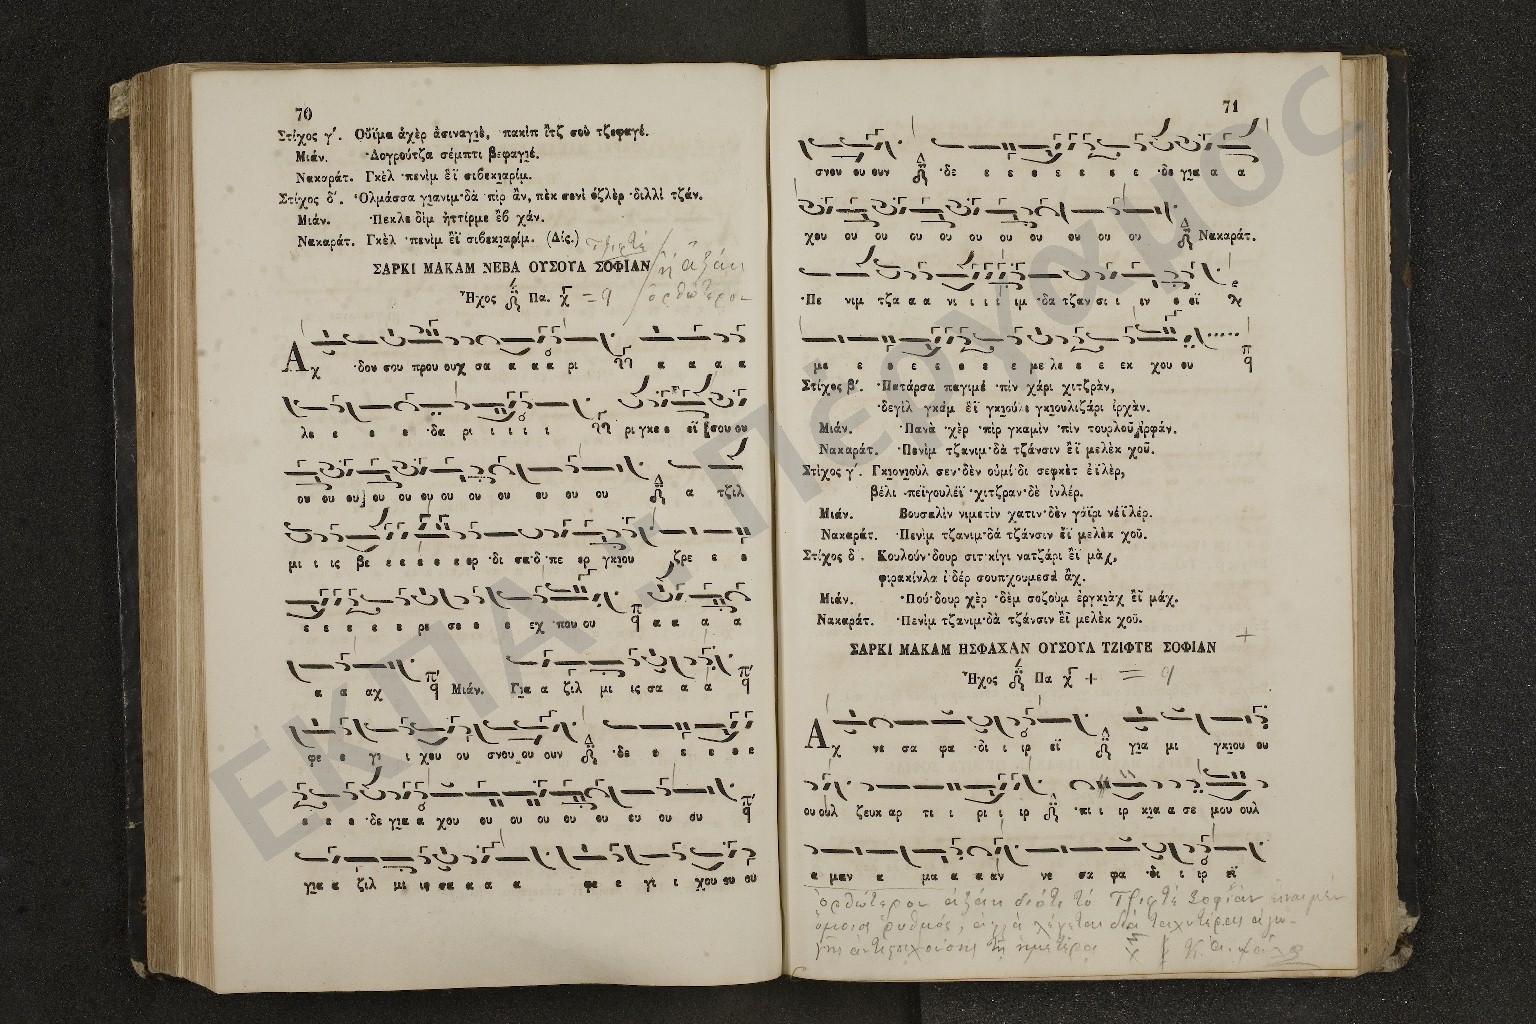 70
Στίχος γ΄. Οὔϊμα ἀχὲρ ἀσιναγιέ, πακὶπ ἲτζ σοὺ τζεφαγέ.
Μιάν. ·Δογρούτζα σέμπτι βεφαγιέ.
Νακαράτ. Γκὲλ ·πενὶμ ἒϊ σιβεκιαρίμ.
Στίχος δ΄. Ὀλμάσσα γιανιμ·δὰ ·πὶρ ἂν, πὲκ σενὶ ὀζλὲρ ·διλλὶ τζάν.
Μιάν. ·Πεκλε·δὶμ ἠττίρμε ἒβ χάν.
Νακαράτ. Γκὲλ ·πενὶμ ἒϊ σιβεκιαρίμ. (Δίς.)
ΣΑΡΚΙ ΜΑΚΑΜ ΝΕΒΑ ΟΥΣΟΥΛ ΣΟΦΙΑΝ
Ἦχος Πα.
Αχ ·δου σου πρου ουχ σα α α α ρι α α α α
λε ε ε ε ·δα ρι ι ι ι ι ρι γκε ε εϊ [σου ου
ου ου ου] ου ου ου ου ου ου ου ου ου α τζιλ
μι ι ις βε ε ε ε ε ερ ·δι σα·δ ·πε ερ γκιου ζρε ε ε
ε ε ε ε ε ρε σε ε ε εχ ·που ου α α α α
α α αχ Μιάν. Για α ζιλ μι ις σα α α
φε ε γι ι χου ου σνου ου ουν ·δε ε ε ε ε ε
ε ε ε ·δε για α χου ου ου ου ου ου ου ου ου
για α ζιλ μι ις σα α α α φε ε γι ι χου ου ου
71
σνου ου ουν ·δε ε ε ε ε ε ε ε ·δε για α α
χου ου ου ου ου ου ου ου ου ου ου Νακαράτ.
·Πε νιμ τζα α α νι ι ι ι ιμ ·δα τζαν σι ι ιν ε εϊ
με ε ε ε ε ε ε ε με λε ε ε εκ χου ου
Στίχος β΄. ·Πατάρσα παγιμέ ·πὶν χάρι χιτζρὰν,
·δεγὶλ γκὰμ ἒϊ γκιοὺλε γκιουλιζάρι ἰρχὰν.
Μιάν. ·Πανὰ ·χὲρ ·πὶρ γκαμὶν ·πὶν τουρλοῦ ἰρφάν.
Νακαράτ. ·Πενὶμ τζανιμ·δὰ τζάνσιν ἒϊ μελὲκ χοῦ.
Στίχος γ΄. Γκιονιοὺλ σεν·δὲν οὐμί·δι σεφκὲτ ἐϊλὲρ,
βέλι ·πεϊγουλέϊ ·χιτζραν·δὲ ἰνλέρ.
Μιάν. Βουσαλὶν νιμετὶν χατιν·δὲν γάϊρι νέϊλέρ.
Νακαράτ. ·Πενὶμ τζανιμ·δὰ τζάνσιν ἒϊ μελὲκ χοῦ.
Στίχος δ΄. Κουλούν·δουρ σιτ·κίγι νατζάρι ἒϊ μὰχ,
φιρακίνλα ἰ·δέρ σουπχουμεσά ἂχ.
Μιάν. ·Πού·δουρ χὲρ ·δὲμ σοζοὺμ ἐργκιὰχ ἒϊ μάχ.
Νακαράτ. ·Πενὶμ τζανιμ·δὰ τζάνσιν ἒϊ μελὲκ χοῦ.
ΣΑΡΚΙ ΜΑΚΑΜ ΗΣΦΑΧΑΝ ΟΥΣΟΥΛ ΤΖΙΦΤΕ ΣΟΦΙΑΝ
Ἦχος Πα
Αχ νε σα φα ·δι ι ιρ εϊ για μι γκιου ου
ου ουλ ζευκ αρ τι ι ρι ι ιρ ·πι ι ιρ κια α σε μου ουλ
α μαν α μα α α αν νε σα φα ·δι ι ιρ εϊ
ὀρθώτερον ἀξὰκ διότι τὸ Τζιφτὲ Σοφιὰν εἶναι μὲν
ὅμοιος ῥυθμός, ἀλλὰ λέγεται διὰ ταχυτέρας ἀγω-
γῆς ἀντιστοιχούσης τῇ ἡμετέρᾳ